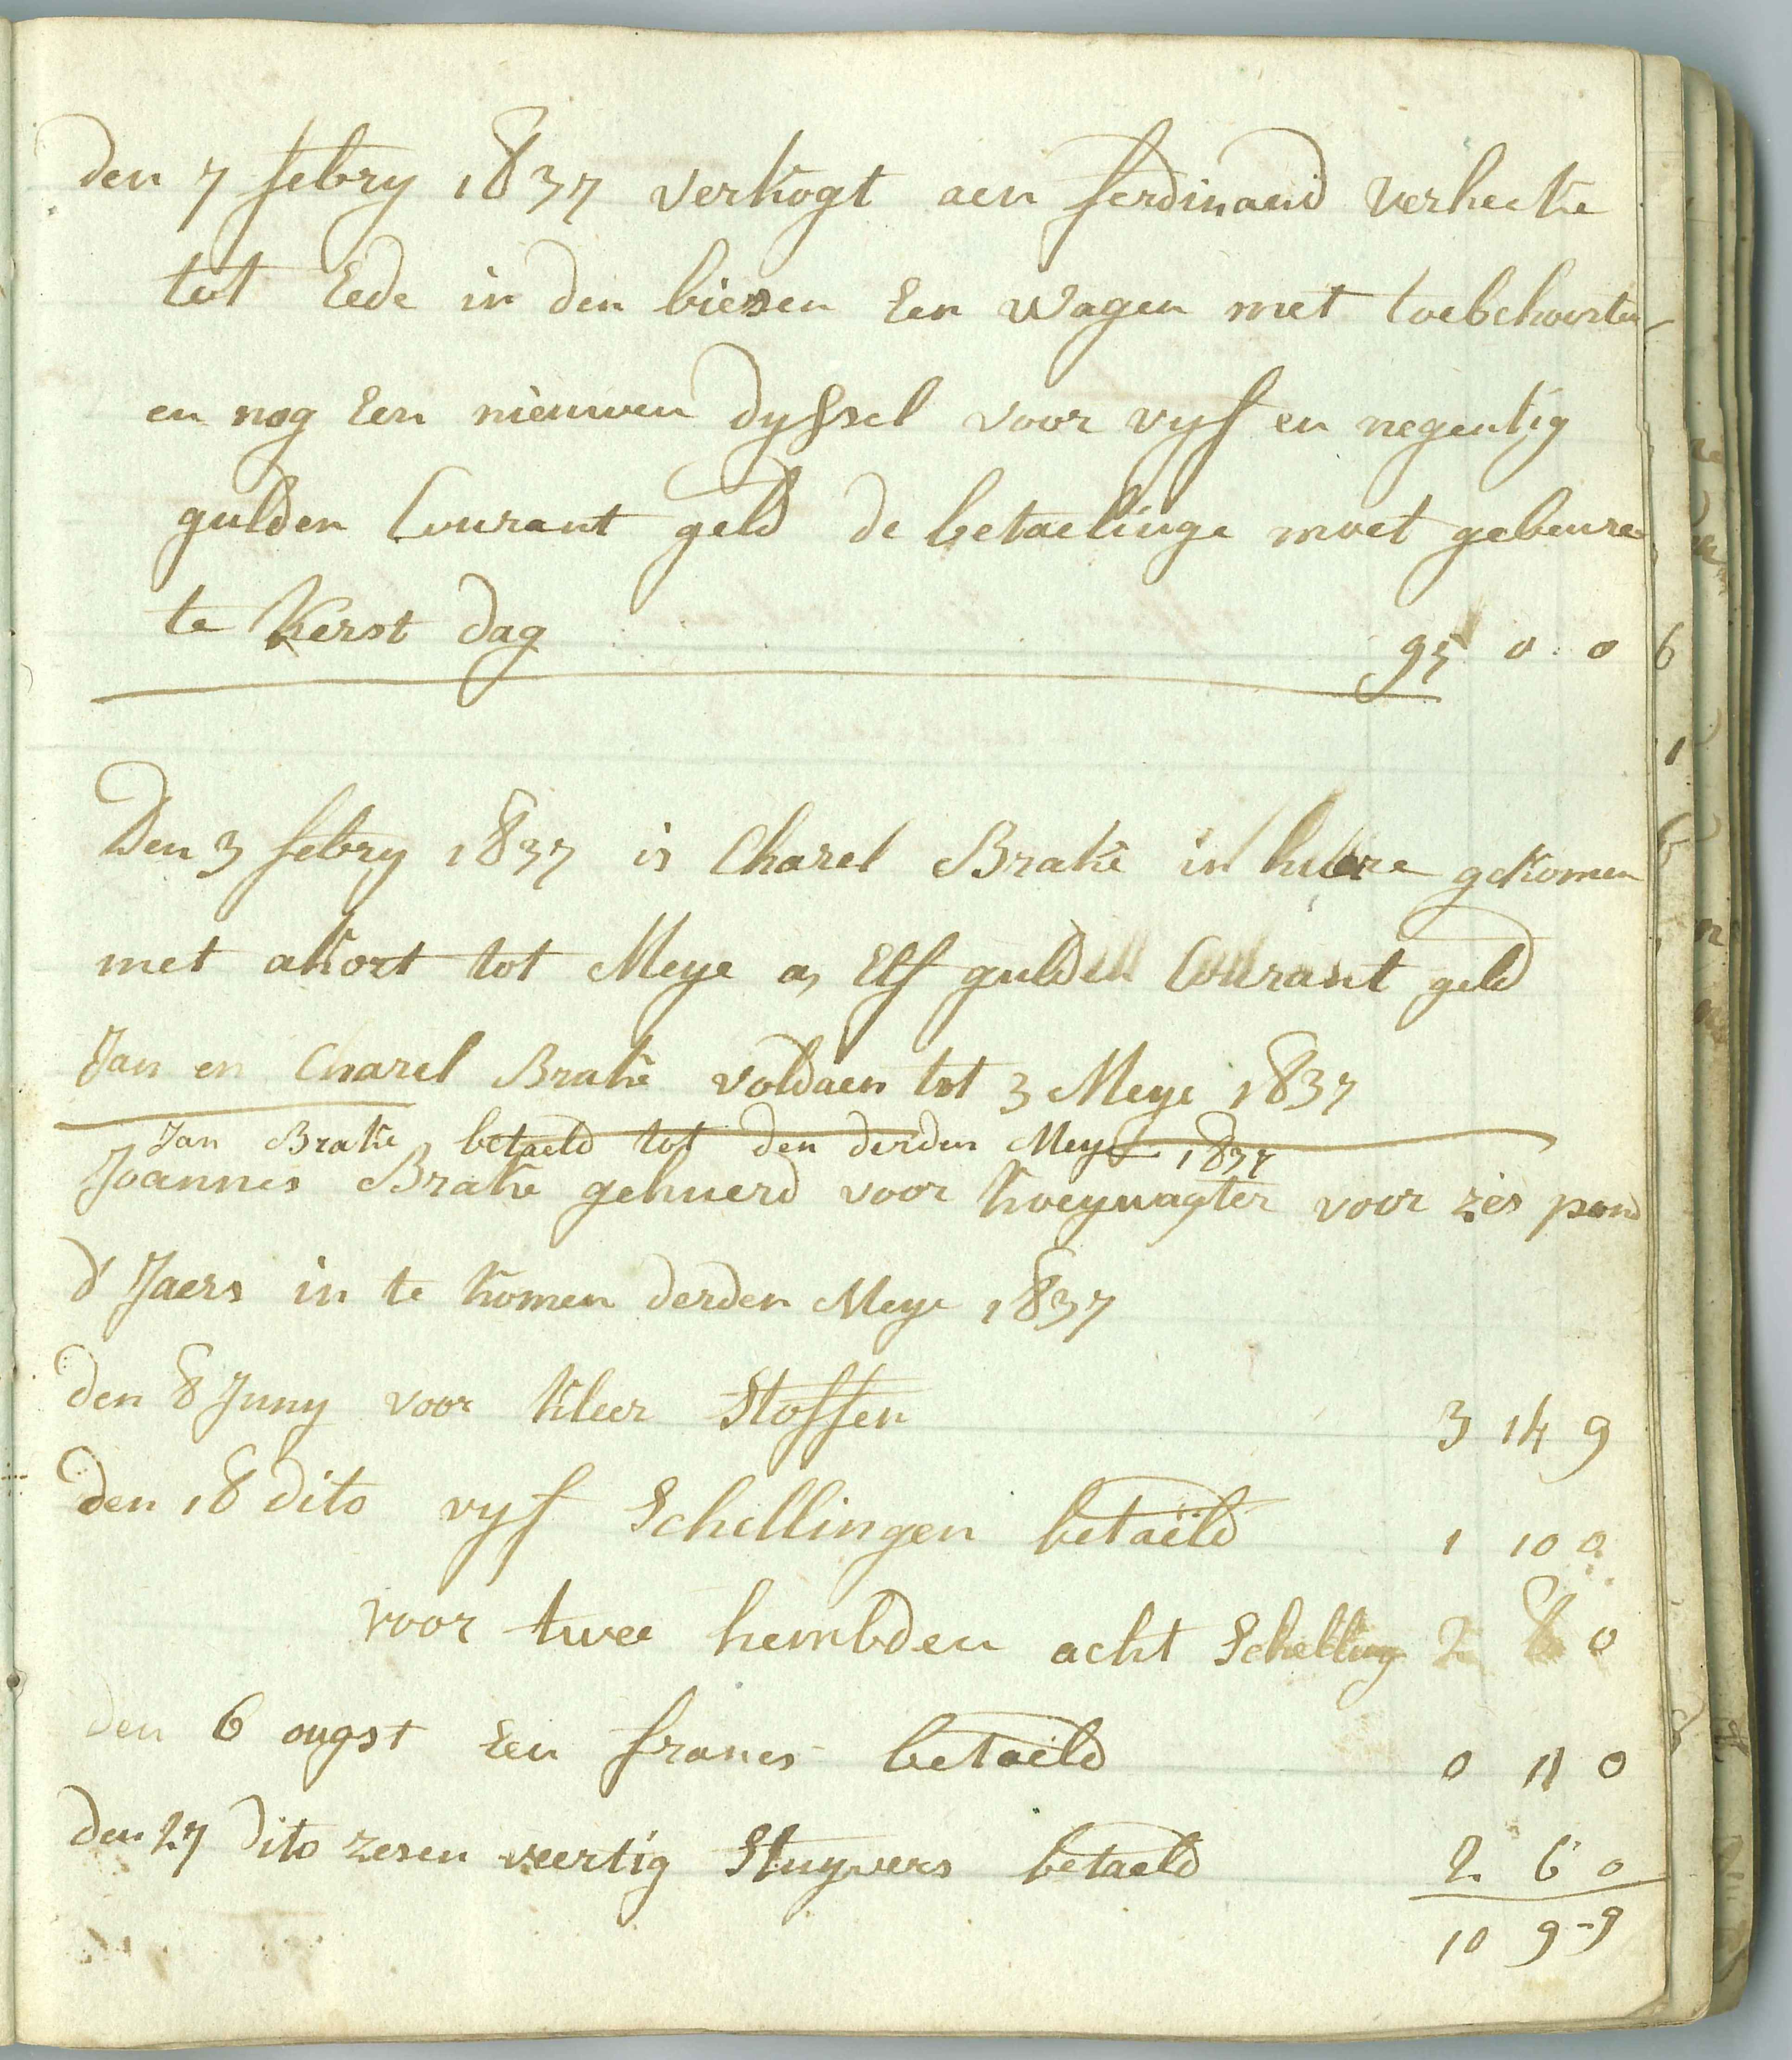 den 7 febry 1837 verkogt aen ferdinand verhecke
tot Eede in den biezen Een wagen met toebehoorten
en nog Een nieuwen dyssel voor vyf en negentig
gulden Courant geld de betaelinge moet gebeuren
te Kerst dag 95 0 0
Den 3 febry 1837 is Charel Brake in huere gekomen
met akort tot Meye a, Elf gulden Courant geld
Jan en Charel Brake voldaen tot 3 Meye 1837
Jan Brake betaeld tot den derden Mey 1837
Joannes Brake gehuerd voor koeywagter voor zes pond
d'Jaers in te komen derden Meye 1837
den 8 Juny voor kleer Stoffen 3 14 9
den 18 dito vyf Schellingen betaeld 1 10 0
voor twee hembden acht Schelling 2 8 0
den 6 ougst Een francs betaeld 0 11 0
den 27 dito zesen veertig Stuyvers betaeld 2 6 0
10 9-9